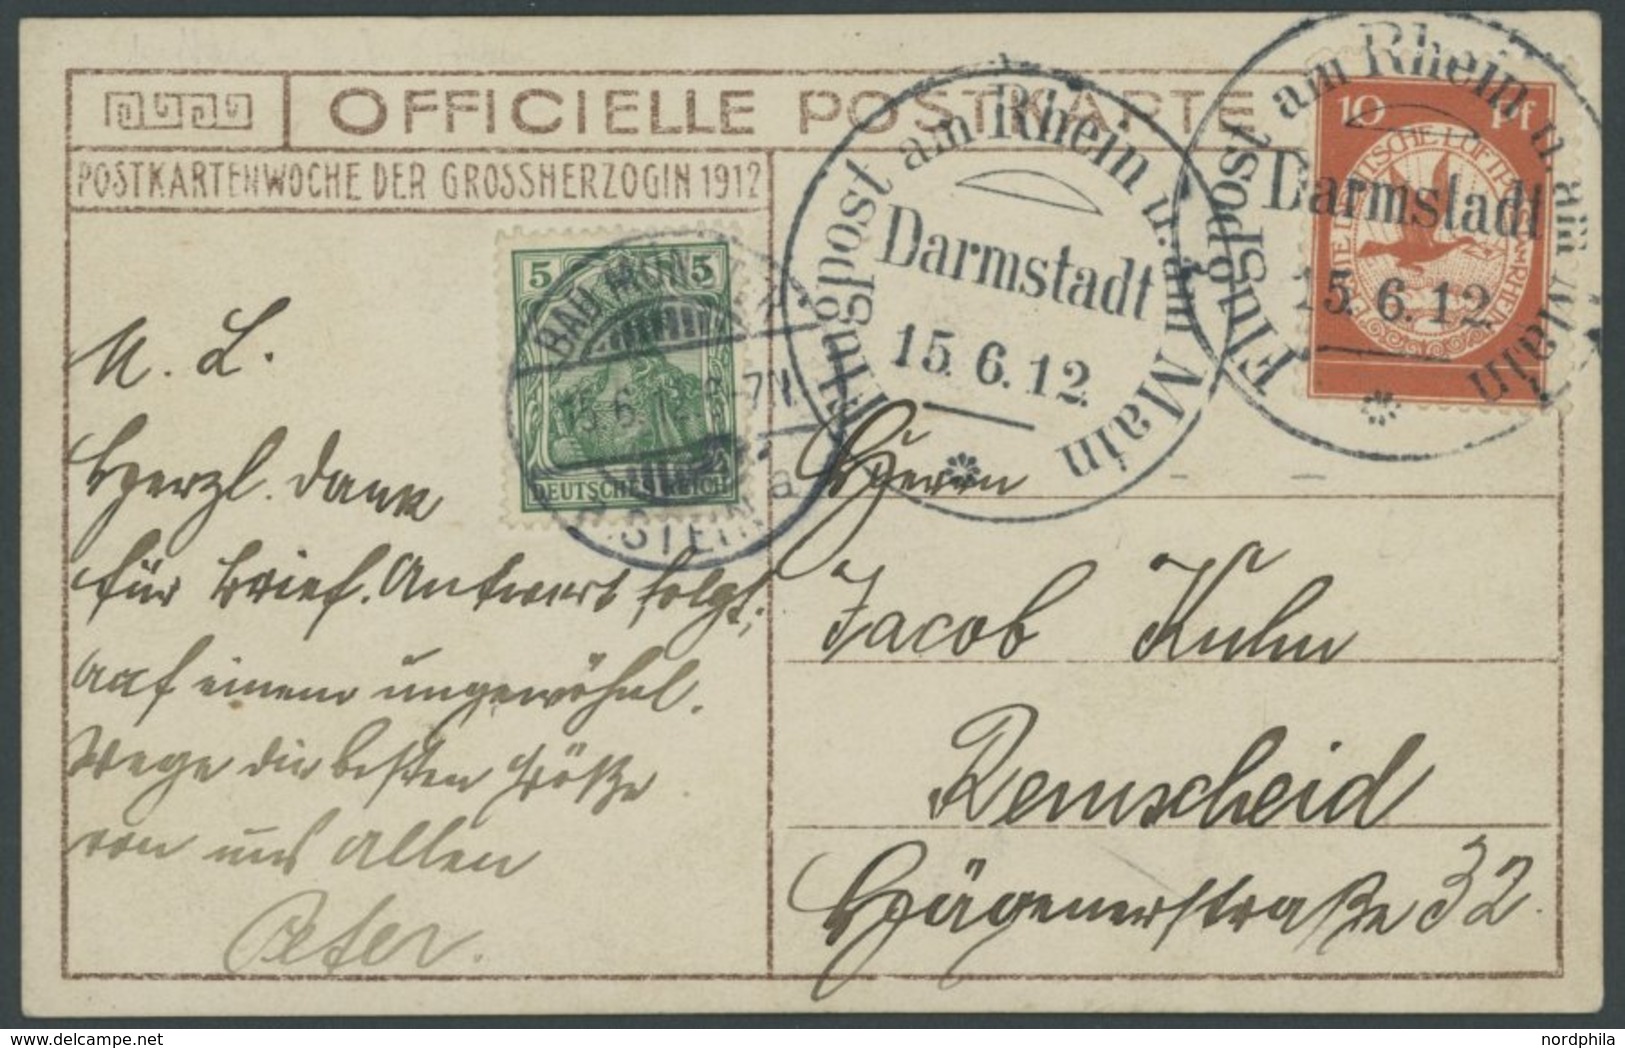 OFFICIELLE POSTKARTE
POSTKARTENWOCHE DER GROSSHERZOGIN 1912
Flugpost am Rhein u. am Main
Darmstadt
15.6.12.
Flugpost am Rhein u. am Main
Darmstadt
15.6.12.
10 Pf
5 5
DEUTSCHES REICH
BAD MÜNSTER
15.6.12 6-7N
a. STEIN a
M. L.
Herzl. Dank
für Brief. Antwort folgt;
auf einem ungewöhnl.
Wege die besten Grüße
von uns allen
Peter.
Herrn
Jacob Kuhn
Remscheid
32.
nordphila